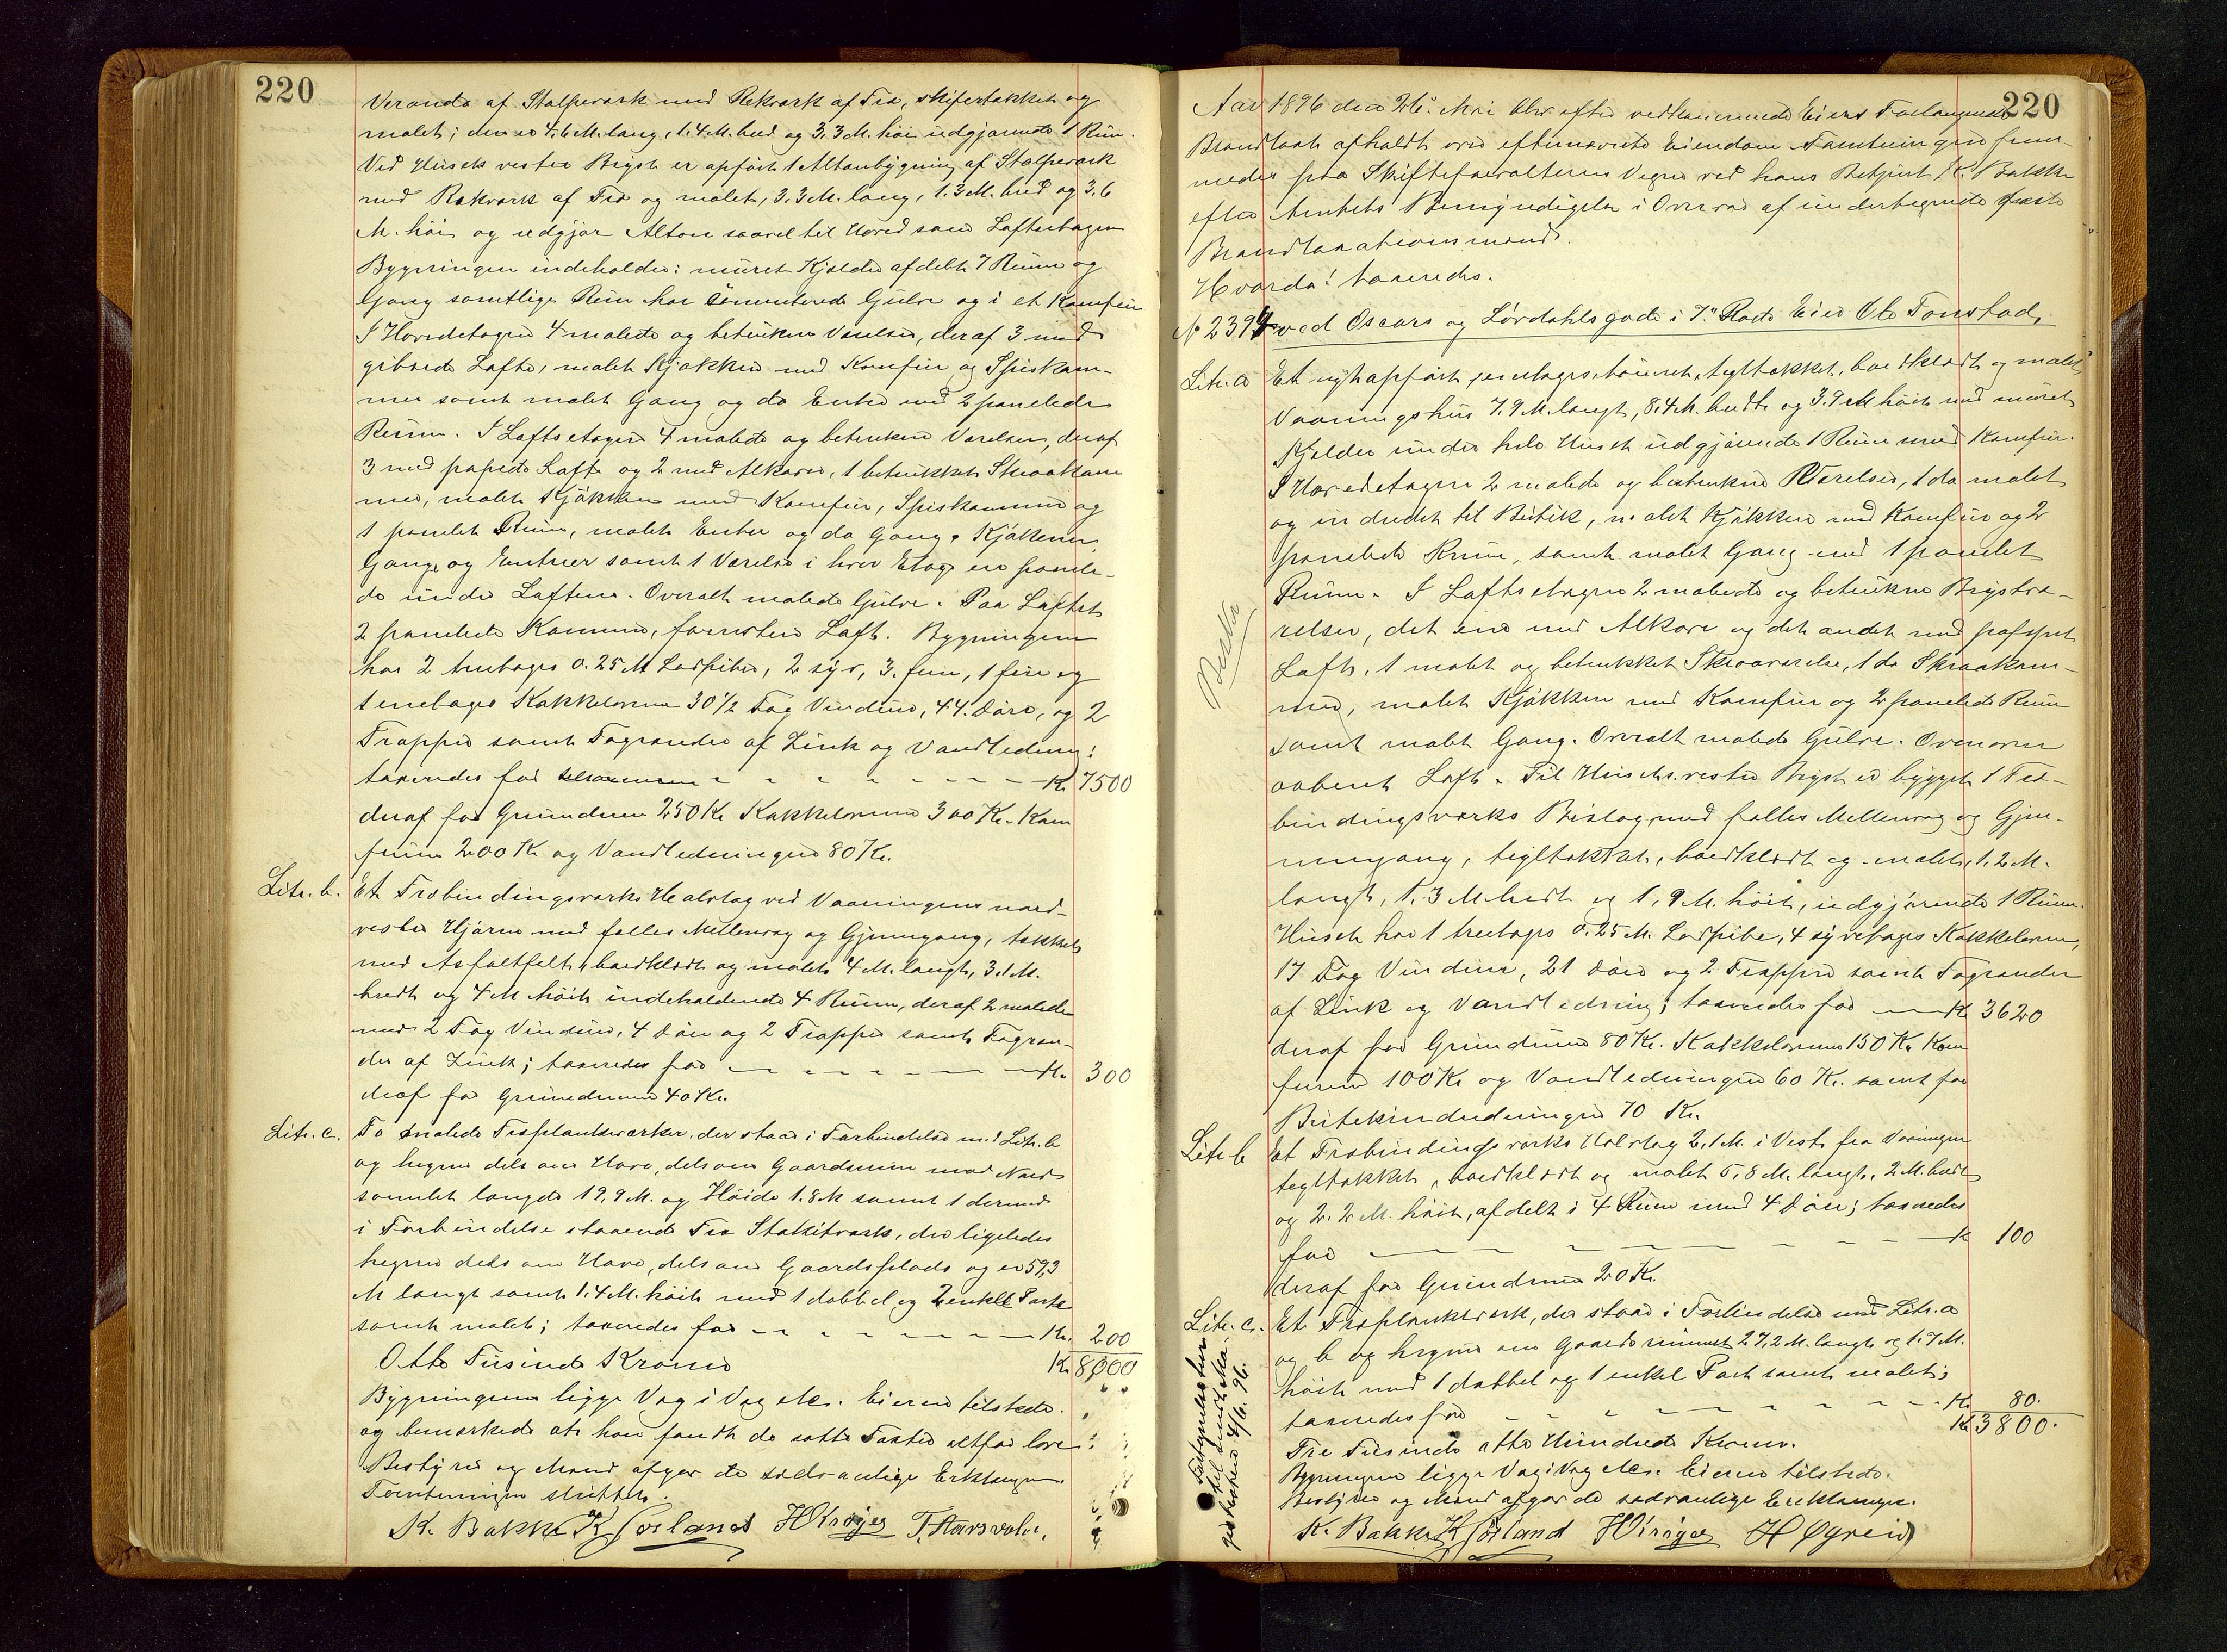 220
Veranda af Stolpeværk med Rekværk af Træ, skifertækket og
malet; den er 4,6 M. lang, 1.4 M. bred og 3,3 M. høi udgjørende 1 Rum.
Ved Husets vestre Bryst er opført 1 Altanbygning af Stolpeværk
med Rekværk af Træ og malet, 3.3 M. lang, 1.3 M. bred og 3.6
M. høi og udgjør Altan saavel til Hoved som Loftsetagen
Bygningen indeholder: muret Kjælder afdelt 7 Rum og
Gang samtlige Rum har sementerede Gulve og i et Komfur
I Hovedetagen 4 malede og betrukne Værelser, deraf 3 med
gibsede Lofte, malet Kjøkken med Komfur og Spiskam-
mer samt malet Gang og do Entre med 2 panelede
Rum. I Loftsetagen 4 malede og betrukne Værelser, deraf
3 med papede Loft og 2 med Alkover, 1 betrukket Skraakam
mer, malet Kjøkken med Komfur, Spiskammer og
1 panelet Rum, malet Entre og do Gang. Kjøkkener,
Gange og Entreer samt 1 Værelse i hver Etage er panele-
de under Loftene. Overalt malede Gulve. Paa Loftet
2 panelede Kammer, forresten Loft. Bygningen
har 2 treetages 0.25 M Lodpiber, 2 syv, 3. fem, 1 fire og
1 treetages Kakkelovne 30 1/2 Fag Vinduer, 44. Døre, og 2
Trapper samt Tagrender af Zink og Vandledning;
taxeredes for - - - - - - Kr. 7500
deraf for Grunden 250 Kr Kakkelovnene 300 Kr. Kom
furene 200 Kr og Vandledningen 80 Kr.
Litr. b. Et Træbindingsværks Halvtag ved Vaaningens nord-
vestre Hjørne med fælles Mellemvæg og Gjennemgang, tækket
med Asfaltfelt, bordklædt og malet 4 M. langt, 3.1 M.
bredt og 4 M høit indeholdende 4 Rum, deraf 2 malede
med 2 Fag Vinduer, 4 Døre og 2 Trapper samt Tagren-
der af Zink; taxeredes for - - - - - Kr. 300
deraf for Grunden 40 Kr.
Litr. c. To malede Træplankeværker, der staar i Forbindelse med Litr. b
og hegner dels om Have, dels om Gaardsrum mod Nord
samlet længde 19,9 M. og Høide 1.8 M samt 1 dermed
i Forbindelse staaende Træ Stakitværk, der ligeledes
hegner dels om Have, dels om Gaardsplads og er 59,3
M langt samt 1.4 M. høit med 1 dobbel og 2 enkle Porte
samt malet; taxeredes for - - - - - - Kr. 200
Otte Tusinde Kroner Kr. 8000
Bygningerne ligge Væg i Væg etc. Eieren tilstede.
og bemærkede at han fandt de satte Taxter altfor lave.
Bestyrer og Mænd afgav de sædvanlige Erklæringer.
Forretningen sluttet.
K. Bakke K Jøsland H Krøger T. Haarsvolen.
220
Aar 1896 den 26. Mai blev efter vedkommende Eiers Forlangende
Brandtaxt afholdt over efternævnte Eiendom. Forretningen frem-
medes paa Skifteforvalterens Vegne ved hans Betjent K. Bakke
efter Amtets Bemyndigelse i Overvær af undertegnede faste
Brandtaxationsmænd.
Hvorda! taxeredes.
No 2394 ved Oscars og Lørdahls gade i 7de Rode Eier Ole Tonstad.
Litr. a Et nyt opført, enetages, tømret, tegltækket, bordklædt og malet
Vaaningshus 7,9 M. langt, 8,4 M. bredt og 3.9 M høit med muret
Kjælder under hele Huset udgjørende 1 Rum med Komfur.
I Hovedetagen 2 malede og betrukne Værelser, 1 do malet
og indredet til Butik, malet Kjøkken med Komfur og 2
panelede Rum, samt malet Gang med 1 panelet
Rum. I Loftsetagen 2 malede og betrukne Brystvæ-
relser, det ene med Alkove og det andet med pappet
Loft, 1 malet og betrukket Skraaværelse, 1 do Skraakam-
mer, malet Kjøkken med Komfur og 2 panelede Rum
samt malet Gang. Overalt malede Gulve. Ovenover
aabent Loft. Til Husets vestre Bryst er bygget 1 Træ-
bindingsværks Bislag med fælles Mellemvæg og Gjen-
nemgang, tegltækket, bordklædt og malet, 1.2 M.
langt, 1.3 M. bredt og 1,9 M. høit, udgjørende 1 Rum.
Huset har 1 treetages 0.25 M. Lodpibe, 4 syvetages Kakkelovne,
17 Fag Vinduer, 21 Døre og 2 Trapper samt Tagrender
af Zink og Vandledning; taxeredes for — Kr 3620
deraf for Grunden 80 Kr. Kakkelovnene 150 Kr Kom
furene 100 Kr og Vandledningen 60 Kr. samt for
Butikindredningen 70 Kr.
Beskr
Litr b Et Træbindingsværks Halvtag 2,1 M. i Vest fra Vaaningen
tegltækket, bordklædt og malet 5,8 M. langt, 2 M. bredt
og 2.2 M. høit, afdelt i 4 Rum med 4 Døre; taxeredes
for - - - - - - - Kr 100
deraf for Grunden 20 Kr.
Litr. c. Et Træplankeværk, der staar i Forbindelse med Litr. a
og b og hegner om Gaardsrummet 27,2 M. langt og 1.7 M.
høit med 1 dobbel og 1 enkel Port samt malet;
taxeredes for - - - - - - - Kr 80.
Kr 3800.
Tre Tusinde otte Hundrede Kroner.
Bygningerne ligge Væg i Væg etc. Eieren tilstede.
Bestyrer og Mænd afgav de sædvanlige Erklæringer.
K. Bakke K Jøsland H Krøger H Øgreid
4/6. 96.